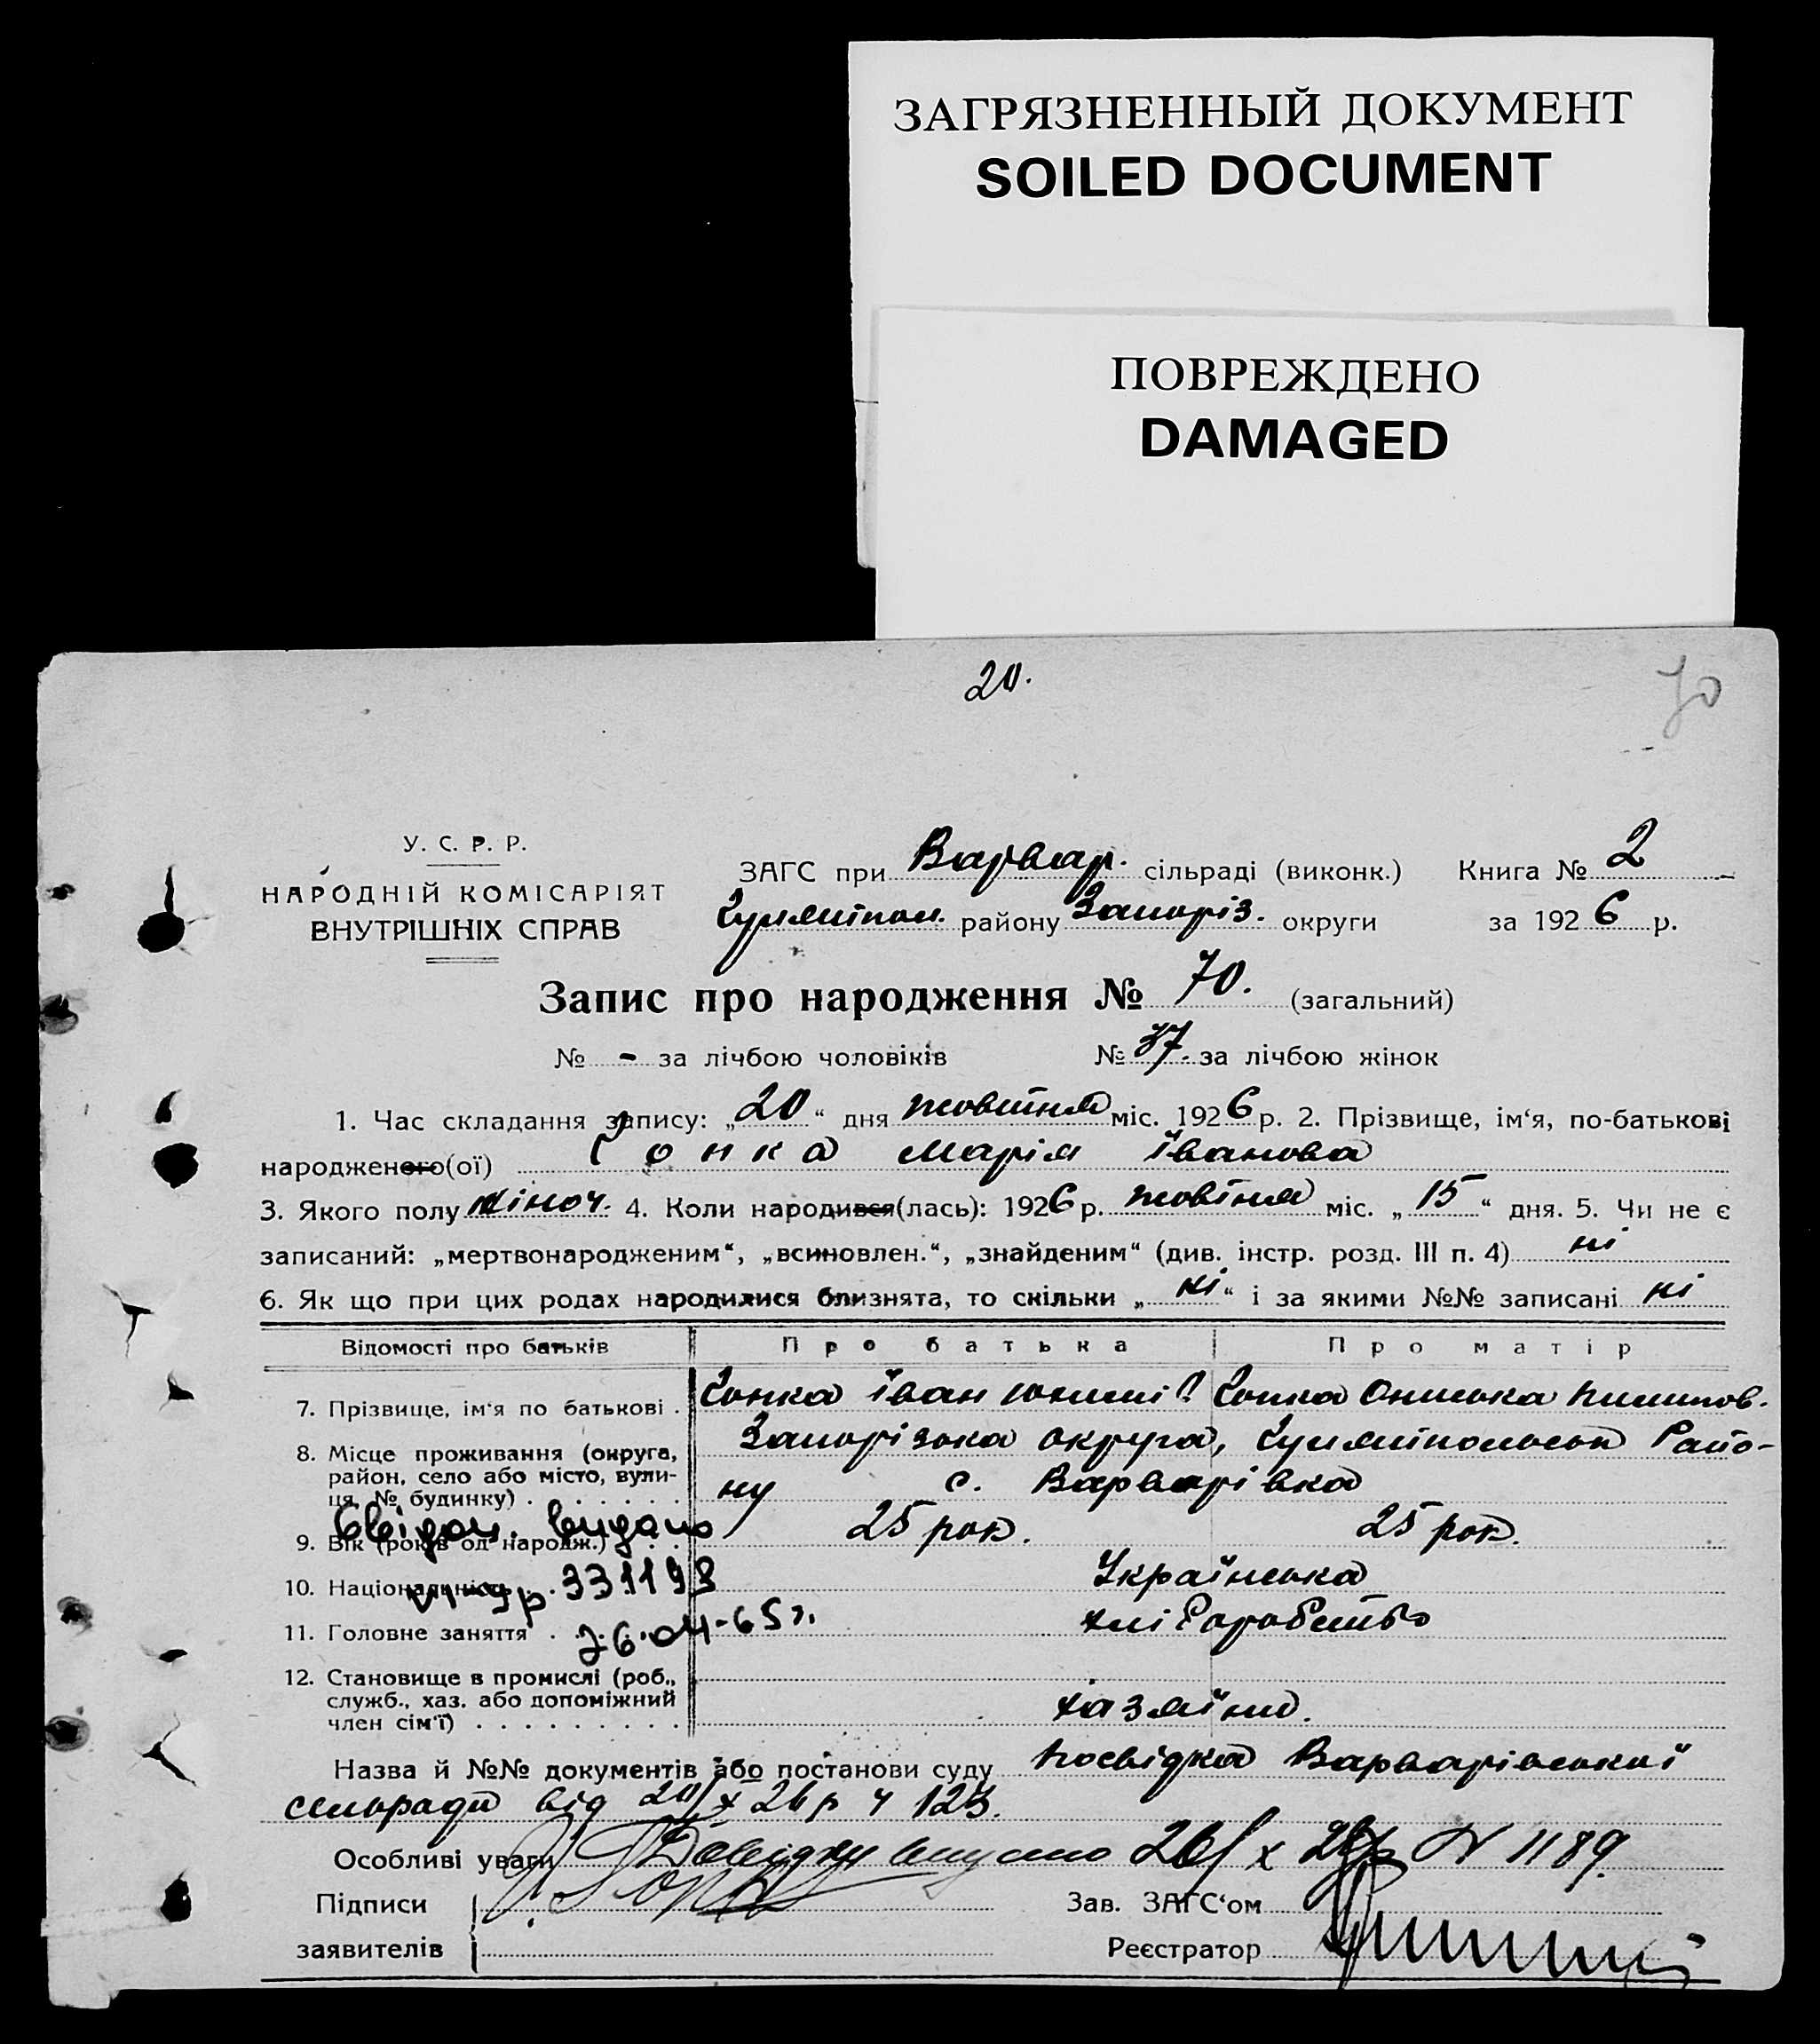 ЗАГРЯЗНЕННЫЙ ДОКУМЕНТ
SOILED DOCUMENT
ПОВРЕЖДЕНО
DAMAGED
20.
70
У. С. Р. Р.
НАРОДНІЙ КОМІСАРІЯТ
ВНУТРІШНІХ СПРАВ
ЗАГС при Варвар. сільраді (виконк.) Книга № 2
Гуляйпол. району Запоріз. округи за 1926 р.
Запис про народження № 70. (загальний)
№ - за лічбою чоловіків № 37. за лічбою жінок
1. Час складання запису: „20“ дня жовтня міс. 1926 р. 2. Прізвище, ім‘я, по-батькові
народженого(ої) Гонка Марія Іванова
3. Якого полу жіноч. 4. Коли народився(лась): 1926 р. жовтня міс. „15“ дня. 5. Чи не є
записаний: „мертвонародженим“, „всиновлен.“, „знайденим“ (див. інстр. розд. III п. 4) ні
6. Як що при цих родах народилися близнята, то скільки „ні“ і за якими №№ записані ні
Відомості про батьків Про батька Про матір
7. Прізвище, ім‘я по батькові . Гонка Іван Гонка
8. Місце проживання (округа, район, село або місто, вулиця, № будинку) . Запорізька округа, Гуляйпольськ Райо-
ну с. Варварівка
Свідоц. видано
9. Вік (років од народж.) 25 рок. 25 рок.
10. Національність Українська
331193
11. Головне заняття . хліборобство
26.04-65 г.
12. Становище в промислі (роб., служб., хаз. або допоміжний член сім‘ї) хазяїни.
Назва й №№ документів або постанови суду посвідка Варварівської
сельради від 20/X 26 р ч 123.
Особливі уваги Довідку видано 26/X 26р N 1189.
Підписи Зав. ЗАГС‘ом
заявителів Реєстратор